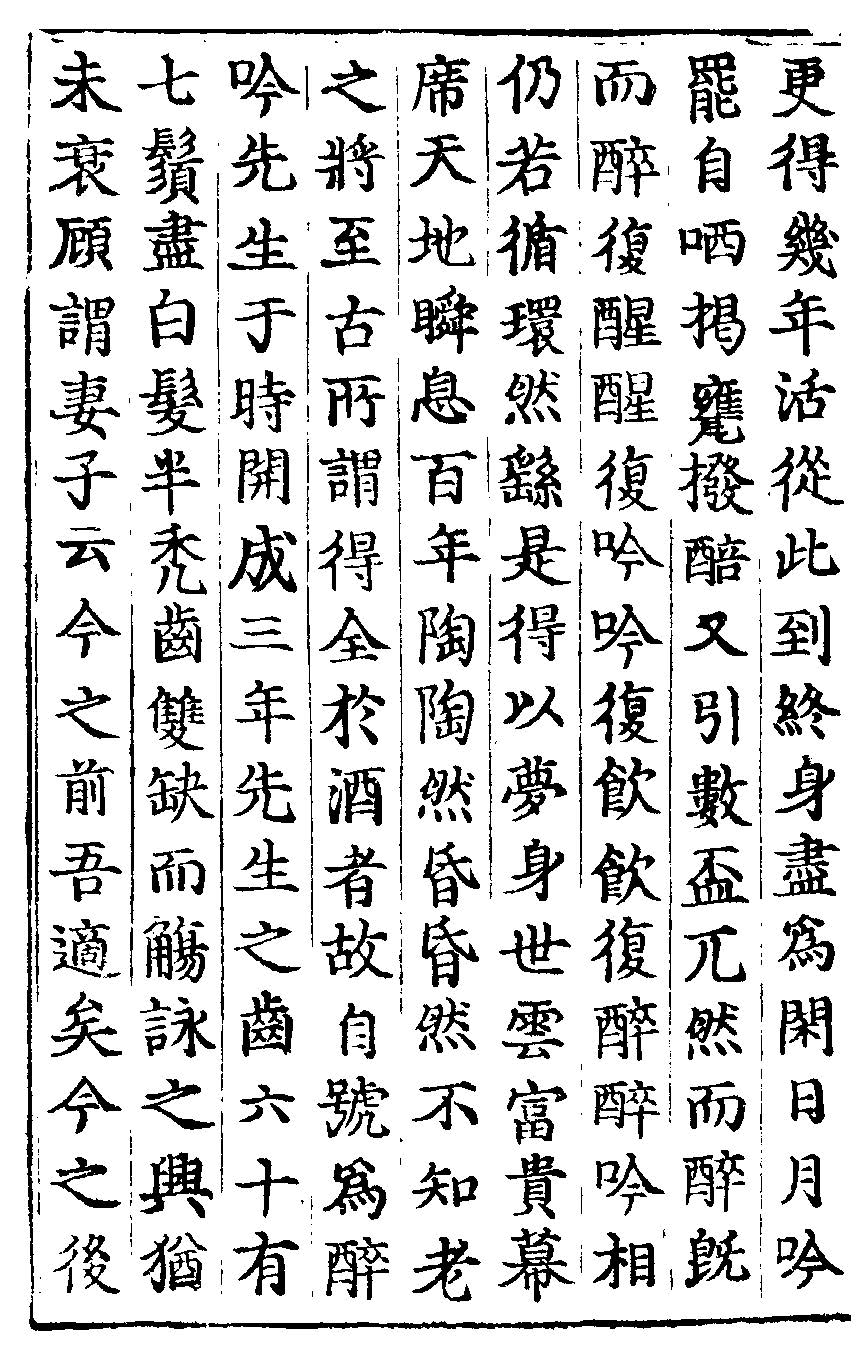 更得幾年活從此到終身盡爲閑日月吟
罷自哂揭甕撥醅又引數盃兀然而醉旣
而醉復醒醒復吟吟復飲飲復醉醉吟相
仍若循環然繇是得以夢身世雲富貴幕
席天地瞬息百年陶陶然昏昏然不知老
之將至古所謂得全於酒者故自號爲醉
吟先生于時開成三年先生之齒六十有
七鬚盡白髮半禿齒雙缺而觴詠之興猶
未衰顧謂妻子云今之前吾適矣今之後